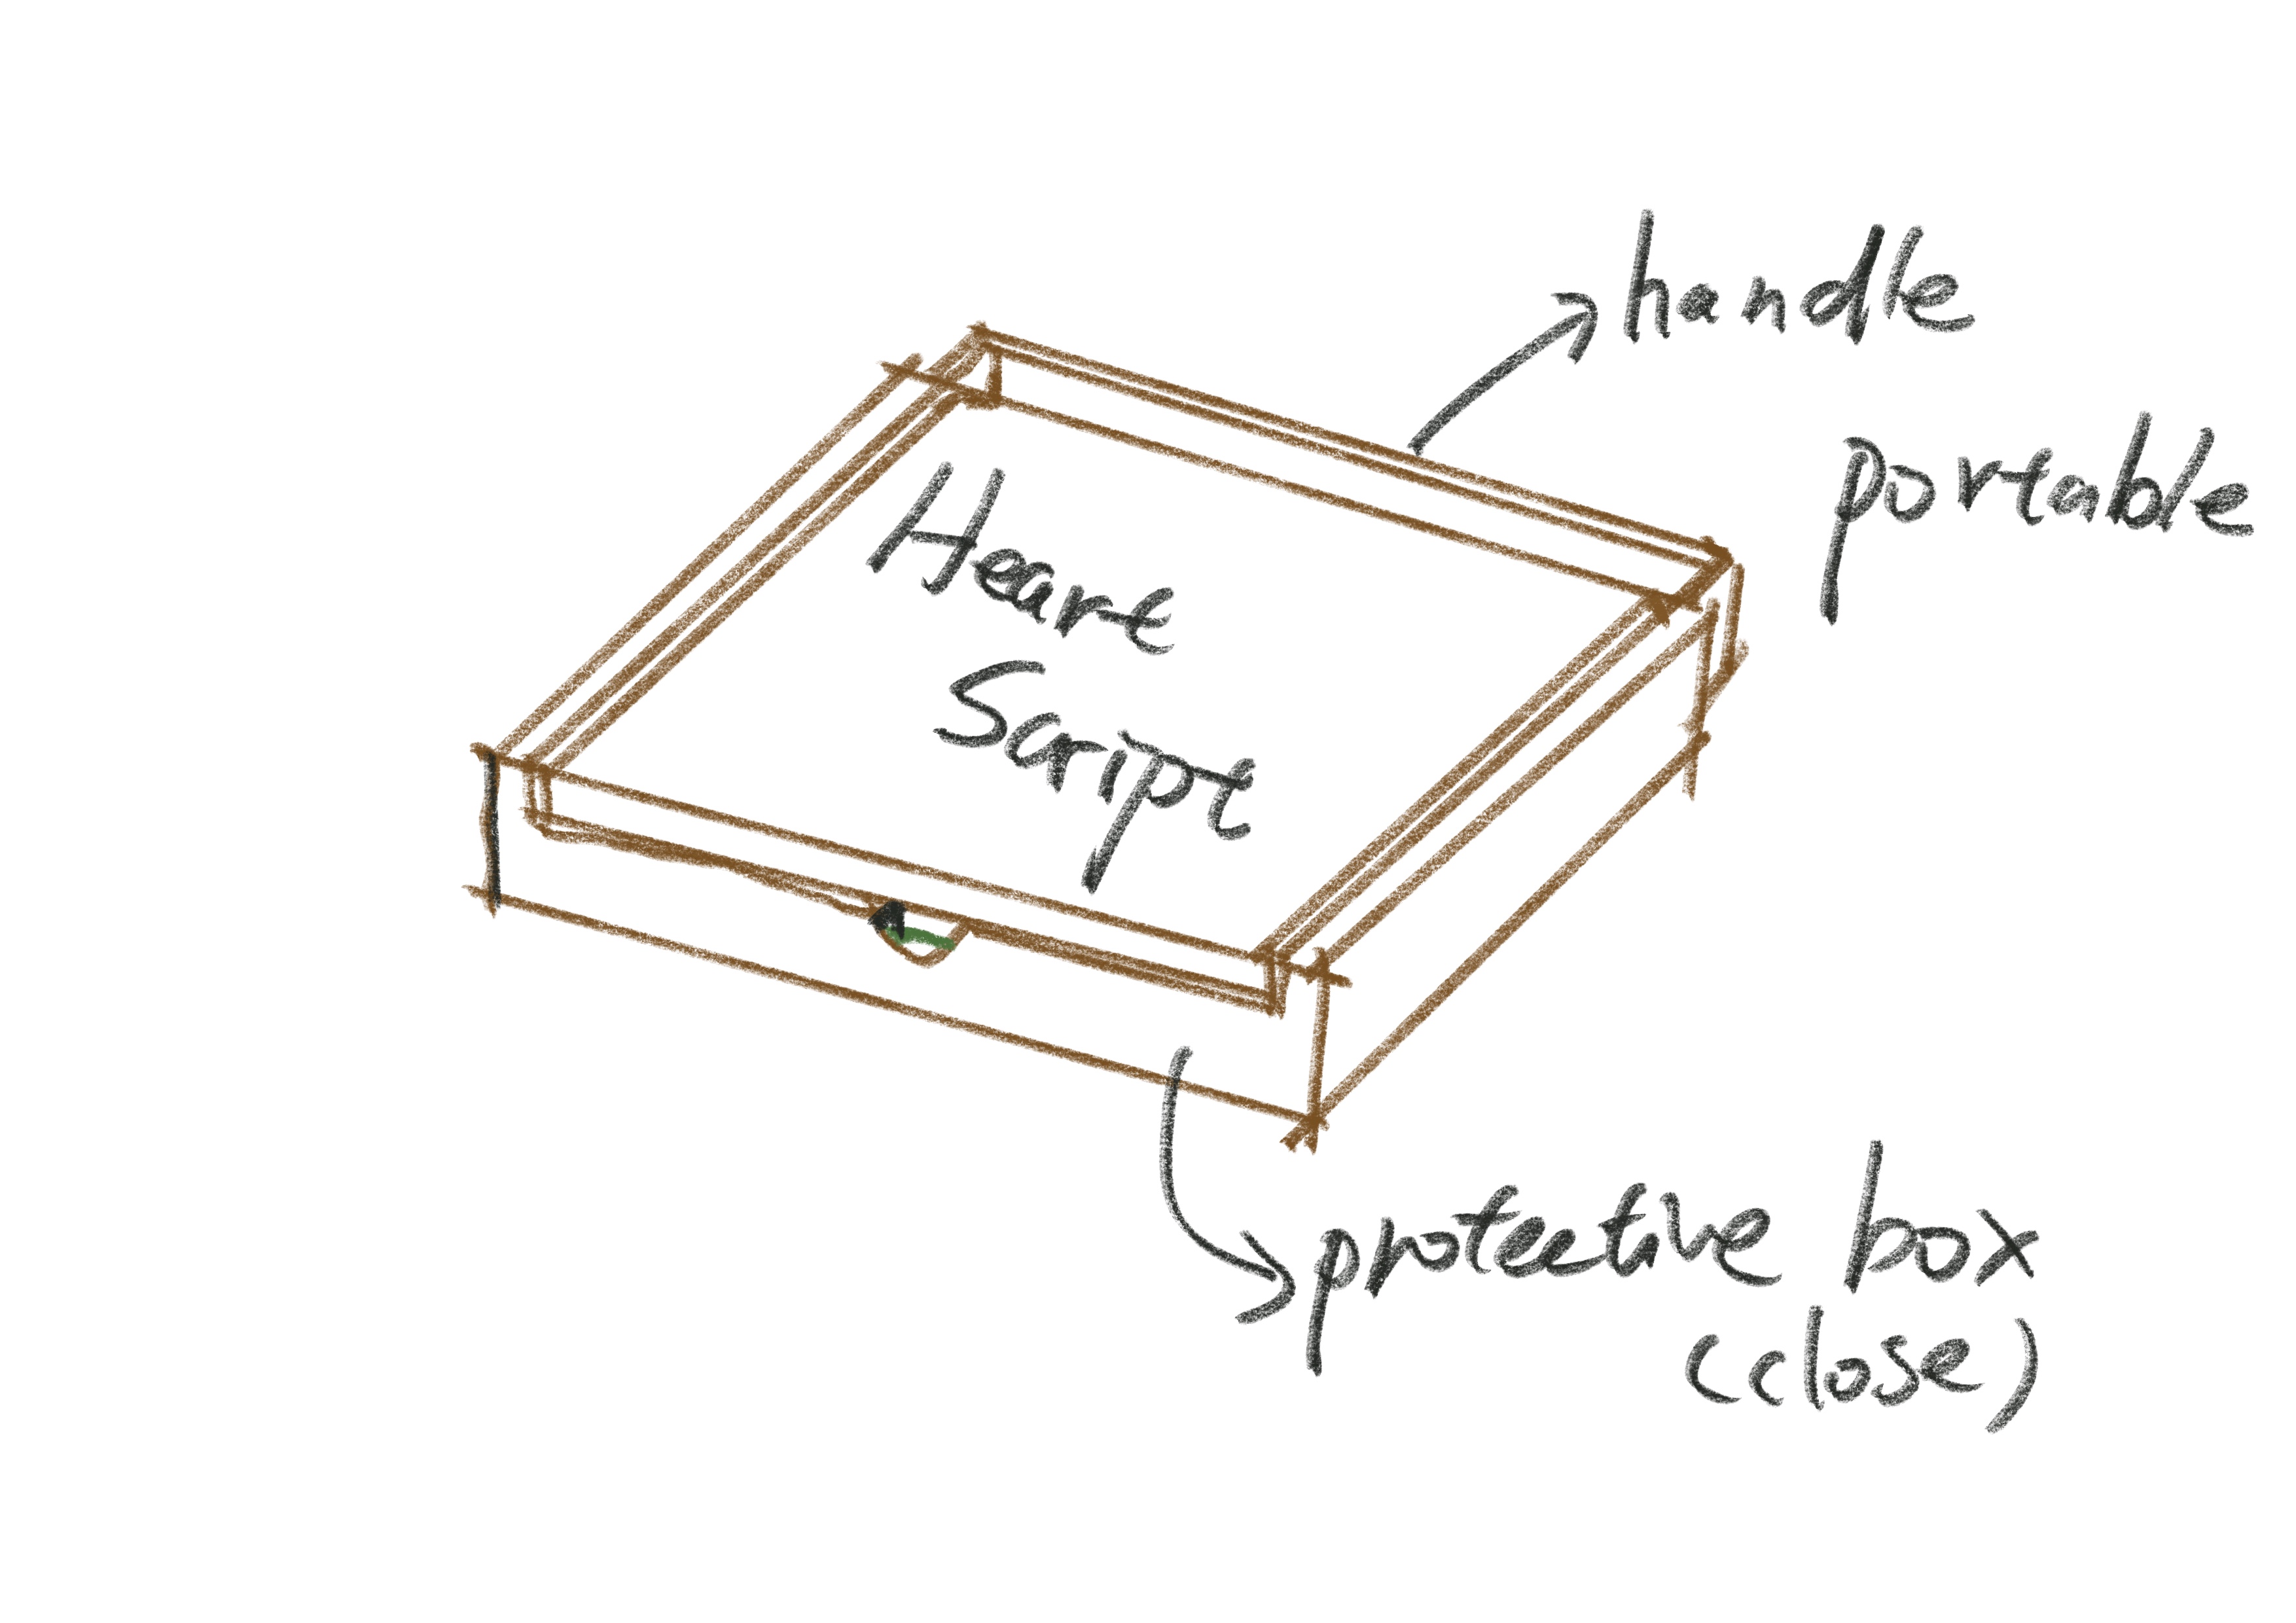 handle
portable
Heart
Script
protective box
(close)